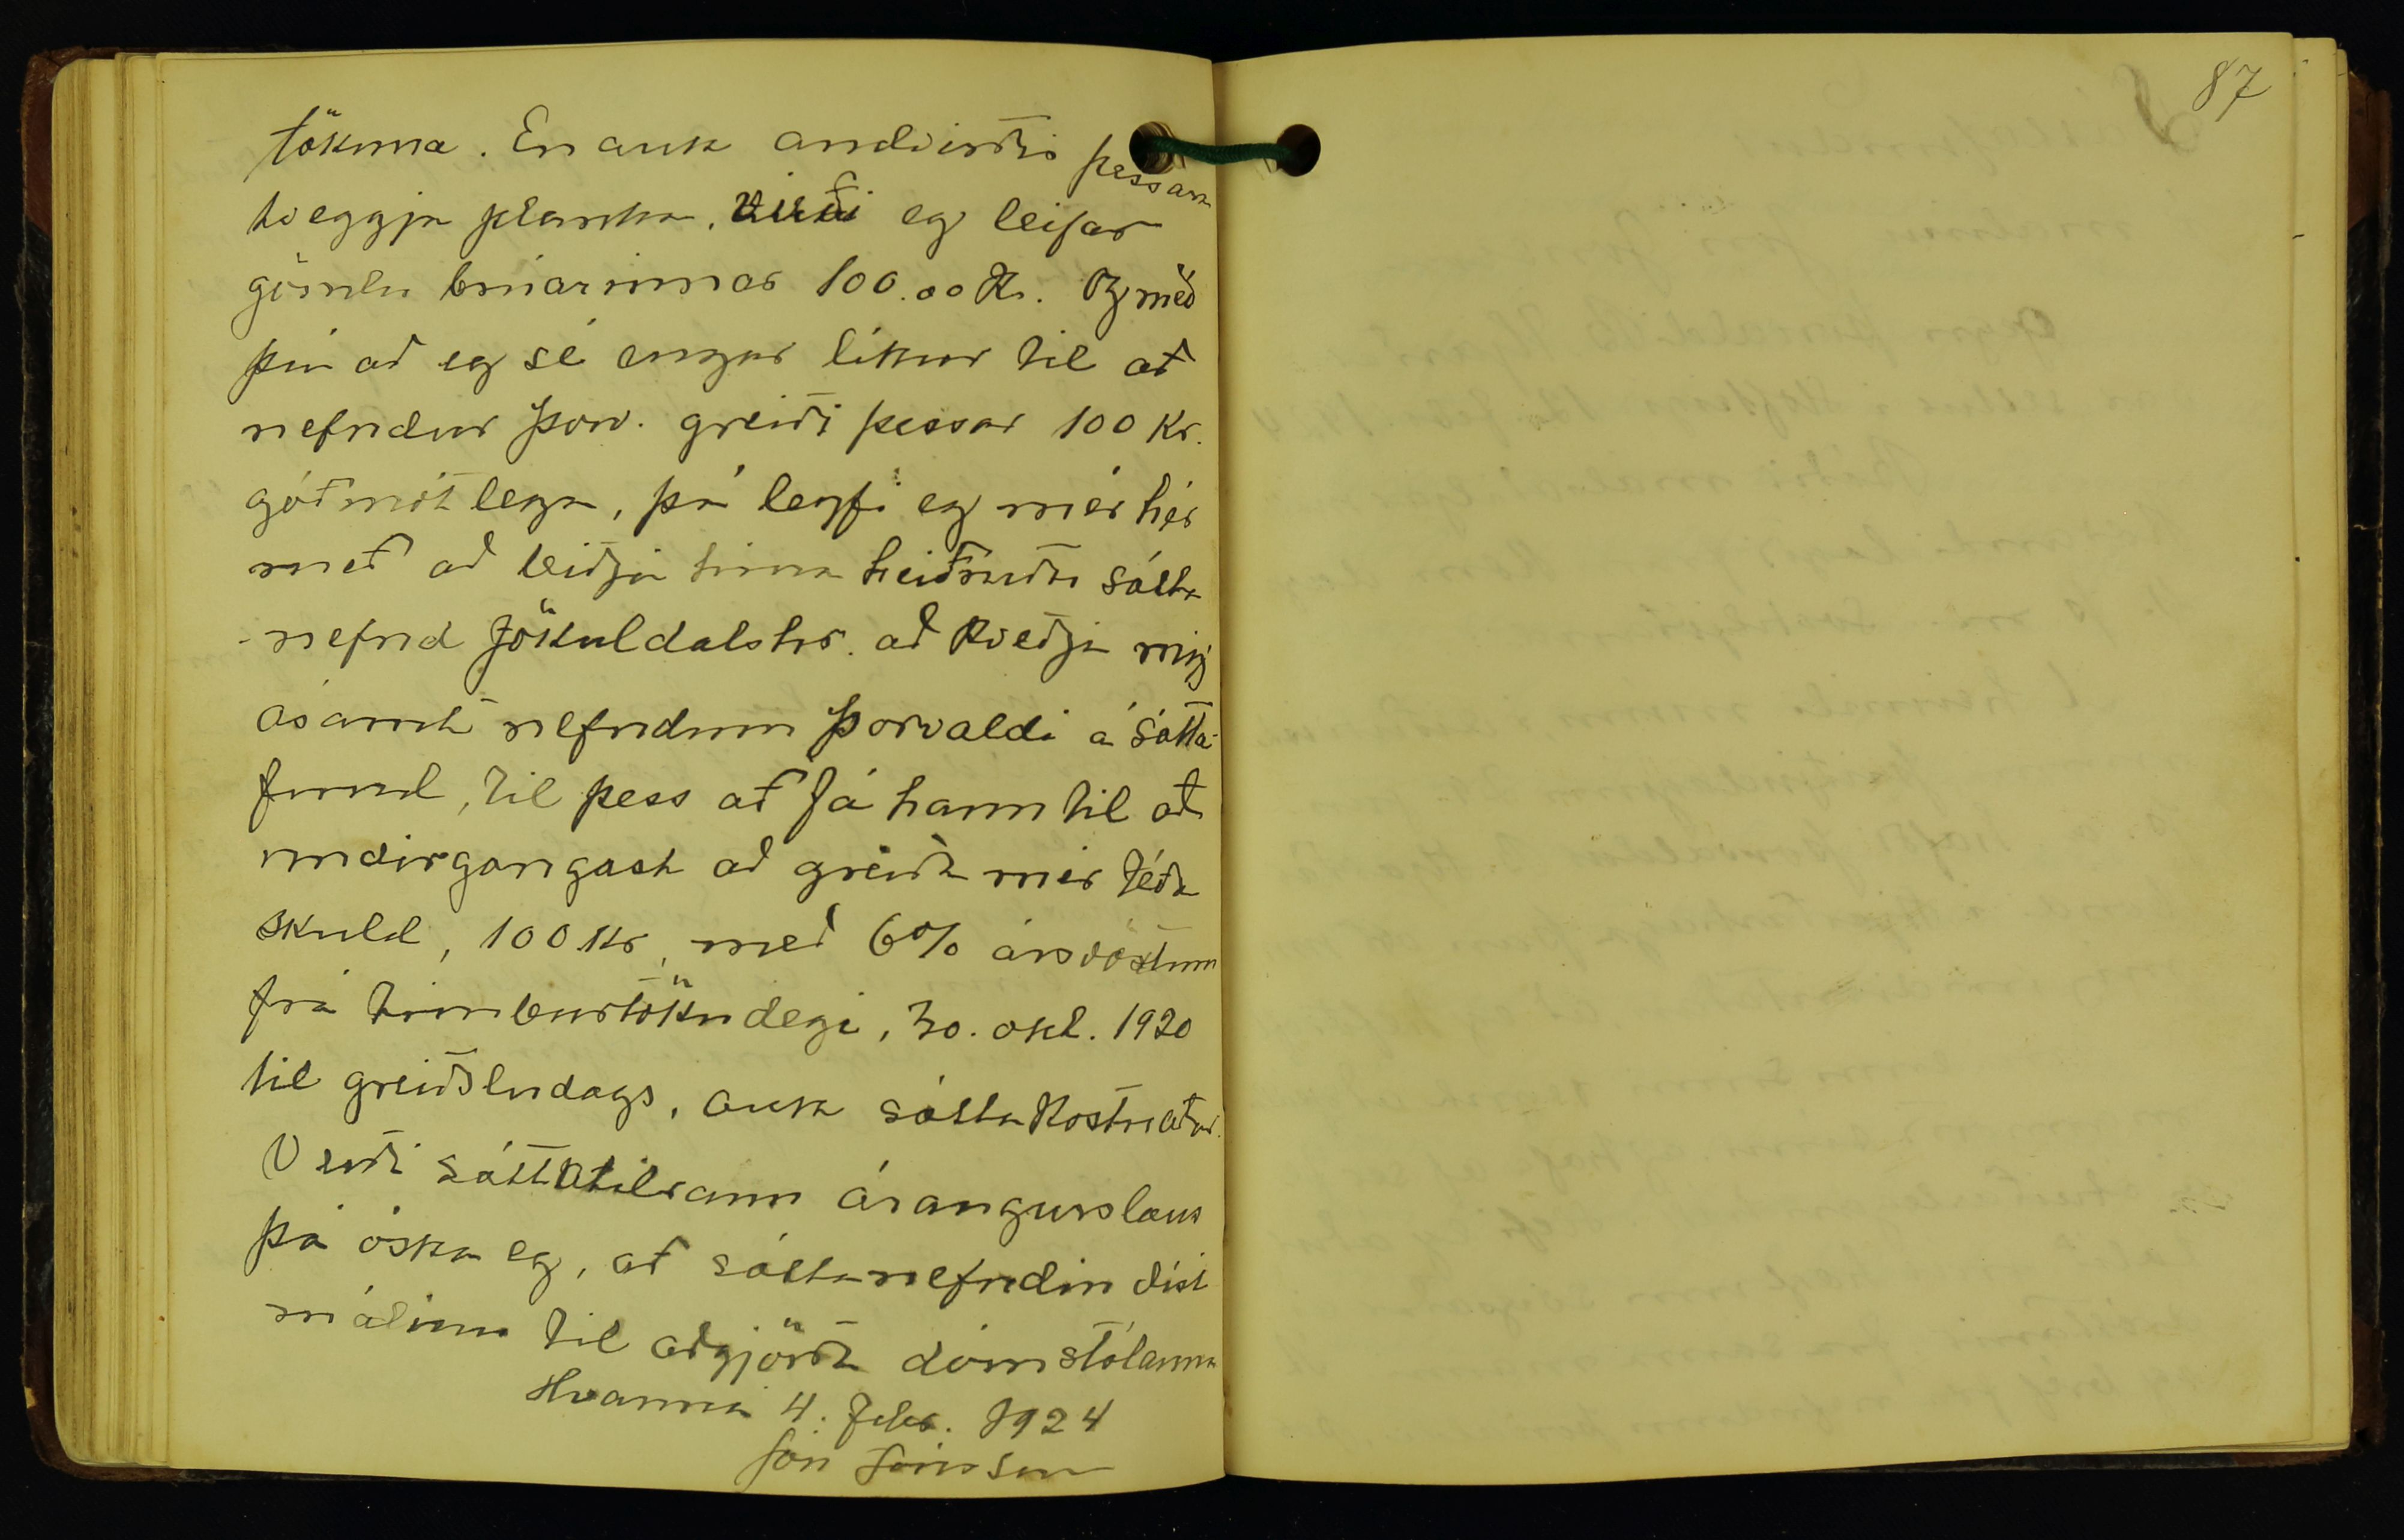 tökuna. En auk andvirðis þessara
tveggja planka, virði eg leifar
gömlu brúarinnar 100.00 Kr. Og með
því að eg sé engar líkur til að
nefndur Þorv. greiði þessar 100 Kr.
góðmótlega, þá leyfi eg mér hér
með að beiðja hina heiðruðu sátta
-nefnd Jökuldalshr. að kveðja mig
ásamt nefndum Þorvaldi á sátta-
fund, til þess að fá hann til að
undirgangast að greiða mér téða
skuld, 100 Kr, með 6% ársvöxtum
frá timburtökudegi, 30. okt. 1920
til greiðsludags, auk sáttakostnaðar.
Verði sáttatilraun árangurslaus
þá óska eg, að sáttanefndin vísi
málinu til aðgjörða dómstólanna
Hvanná 4. febr. 1924
Jón Jónsson
87